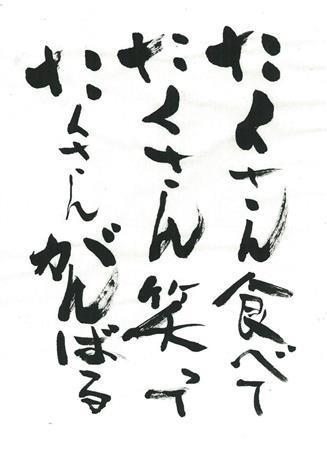 たくさん食べて
たくさん笑って
たくさんがんばる